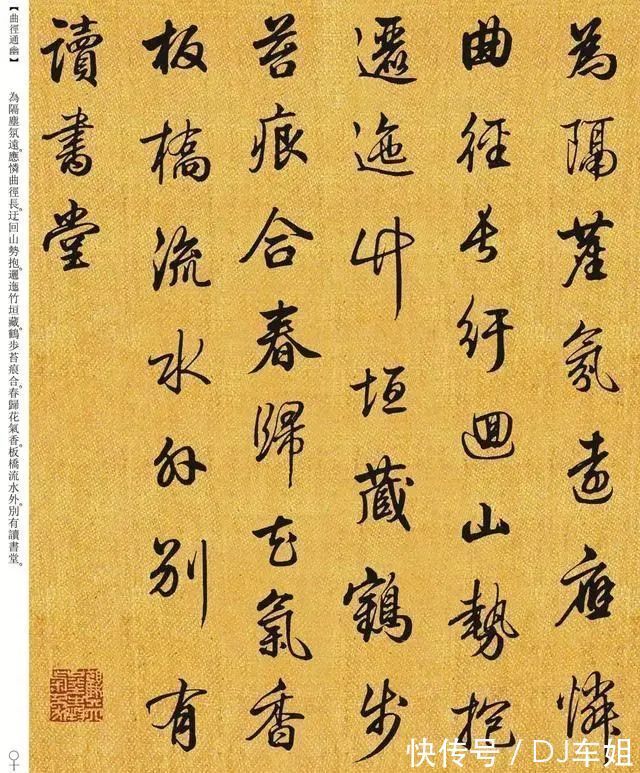 為隔塵氛遠應憐
曲徑長紆迴山勢抱
邐迤竹垣藏鶴步
苔痕合春歸花氣香
板橋流水外別有
讀書堂
【曲徑通幽】 為隔塵氛遠。應憐曲徑長。迂回山勢抱。邐迤竹垣藏。鶴步苔痕合。春歸花氣香。板橋流水外。別有讀書堂。
〇十
快传号/DJ车姐